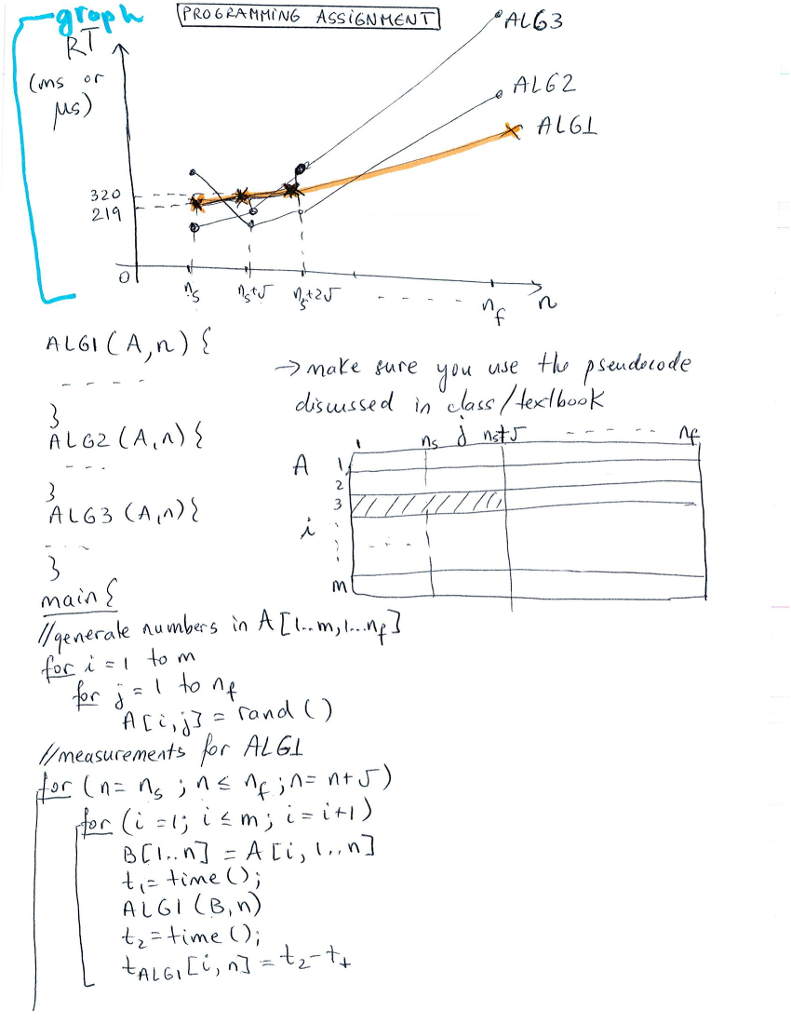 graph
PROGRAMMING ASSIGNMENT
RT
(ms or
μs)
ALG3
ALG2
ALG1
320
219
0
ns
ns+5
ns+25
- - - - -
nf
n
ALG1(A,n) {
- - - - -
}
ALG2(A,n){
- - -
}
ALG3(A,n){
- - -
}
→ make sure you use the pseudocode
discussed in class/textbook
1 ns j ns+5 - - - - - - nf
A 1
2
3
i
- - - -
m
main{
//generate numbers in A[1..m,1...nf]
for i=1 to m
for j=1 to nf
A[i,j] = rand()
//measurements for ALG1
for (n= ns ; n ≤ nf ; n= n+5)
for (i=1; i ≤ m; i=i+1)
B[1..n] = A[i, 1..n]
t1=time();
ALG1(B,n)
t2=time();
tALG1[i,n] = t2-t1